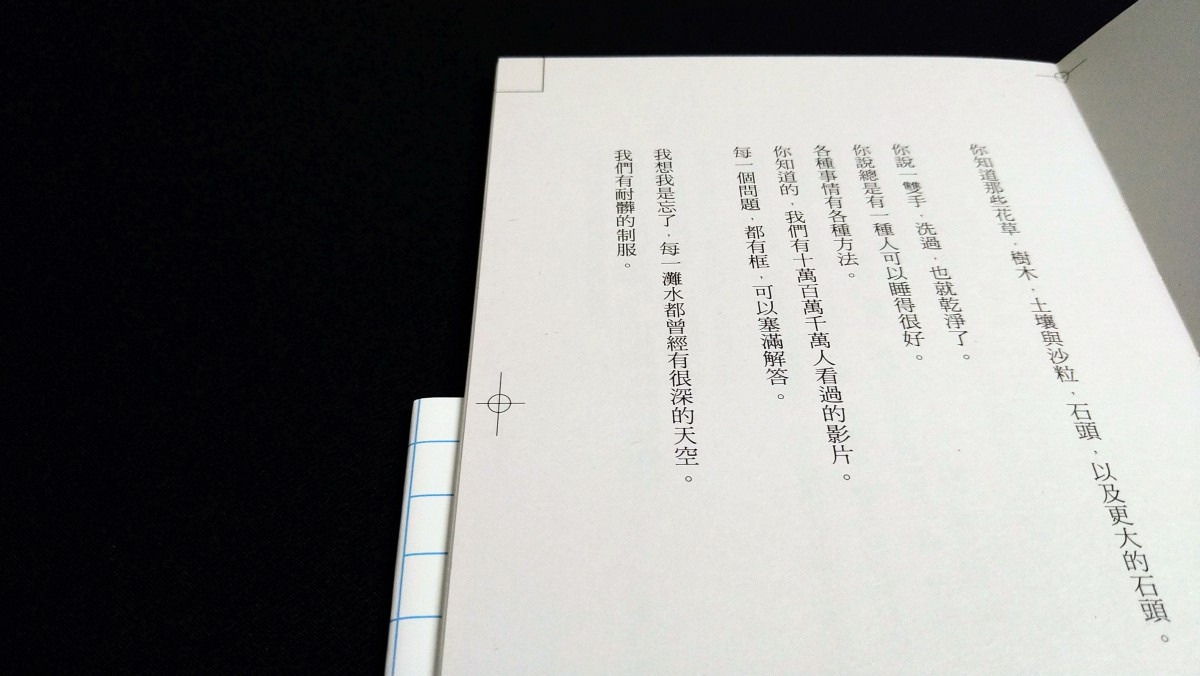 你知道那些花草，樹木，土壤與沙粒，石頭，以及更大的石頭。
你說一雙手，洗過，也就乾淨了。
你說總是有一種人可以睡得很好。
各種事情有各種方法。
你知道的，我們有十萬百萬千萬人看過的影片。
每一個問題，都有框，可以塞滿解答。
我想我是忘了，每一灘水都曾經有很深的天空。
我們有耐髒的制服。